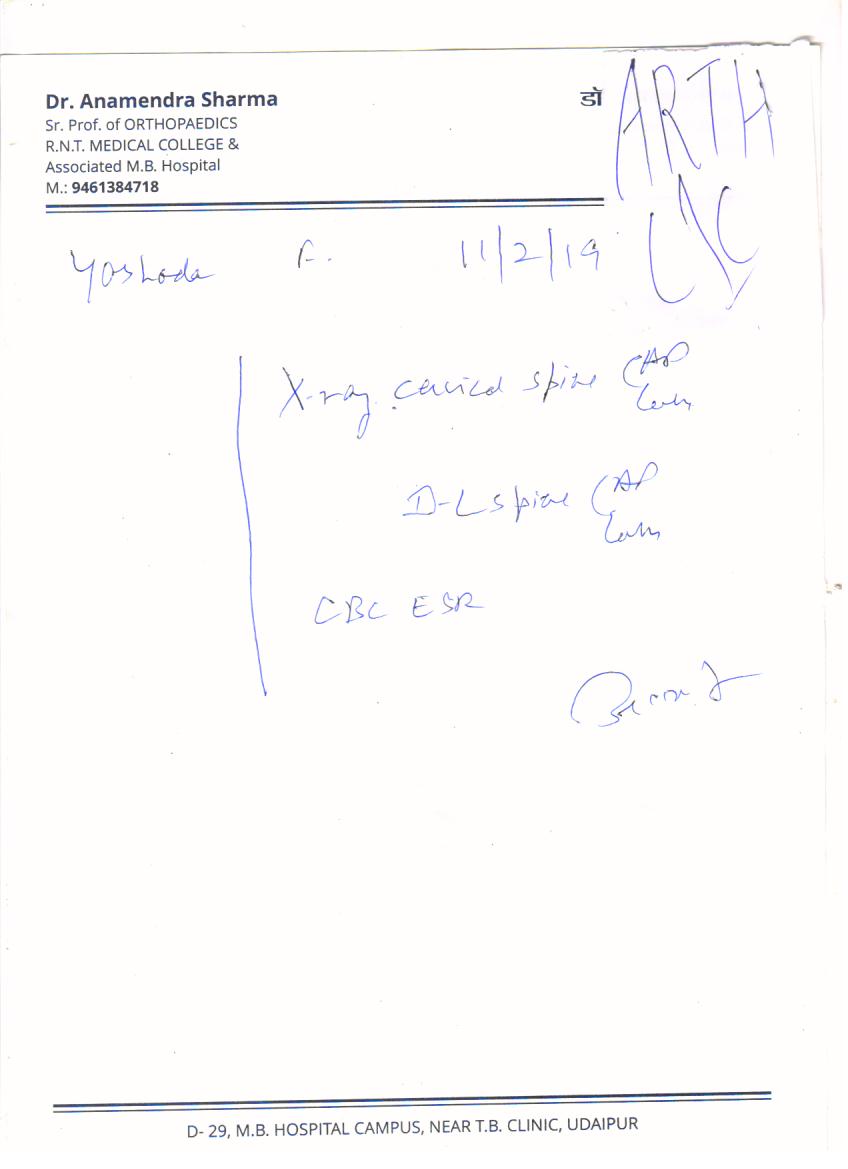 Dr. Anamendra Sharma
Sr. Prof. of ORTHOPAEDICS
R.N.T. MEDICAL COLLEGE &
Associated M.B. Hospital
M.: 9461384718
डॉ
ARTH
Yoshoda F. 11/2/19
X-ray cervical spine AP
Lat
D-L spine AP
Lat
CBC ESR
D- 29, M.B. HOSPITAL CAMPUS, NEAR T.B. CLINIC, UDAIPUR